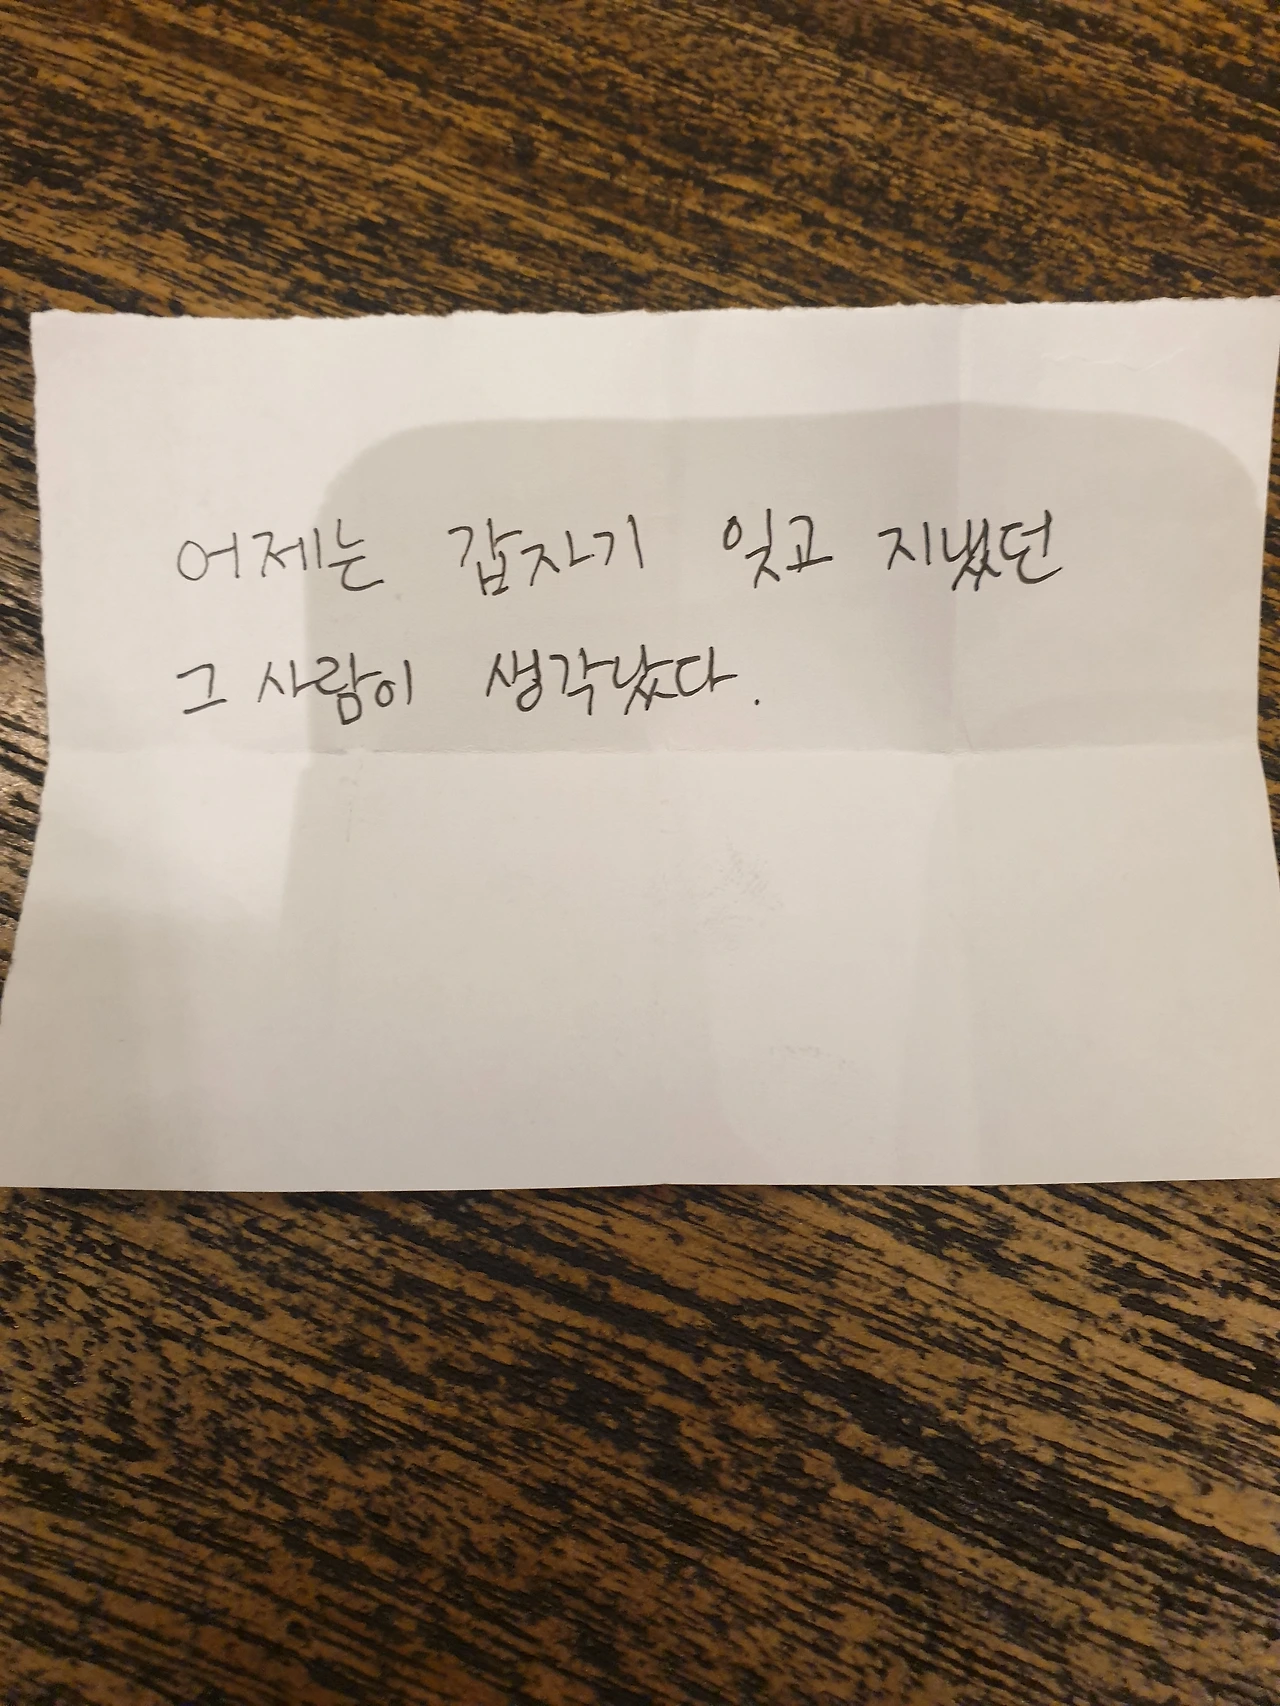 어제는 갑자기 잊고 지냈던
그 사람이 생각났다.